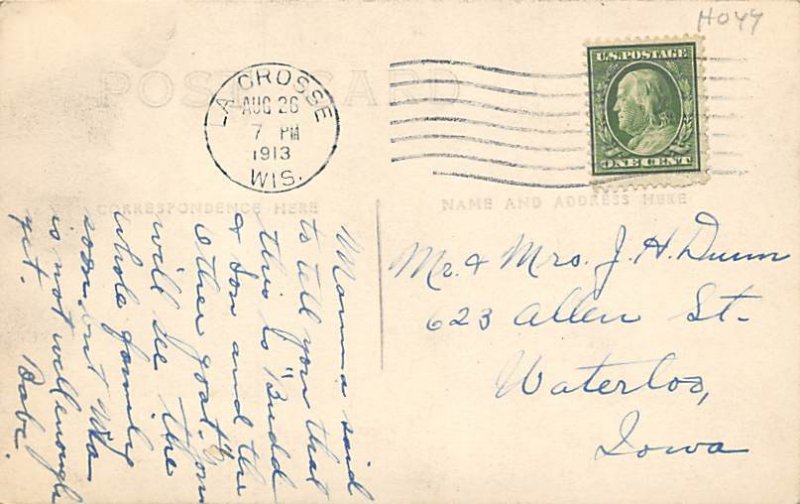 H044
POST CARD
U.S. POSTAGE
ONE CENT
LA CROSSE
AUG 26
7 PM
1913
WIS.
CORRESPONDENCE HERE
NAME AND ADDRESS HERE
Mama said
to tell you that
this is "Budd
& Son and the
other goat." You
will see the
whole family
soon, but Ma
is not well enough
yet. Babe.
Mr. & Mrs. J. H. Dunn
623 Allen St.
Waterloo,
Iowa